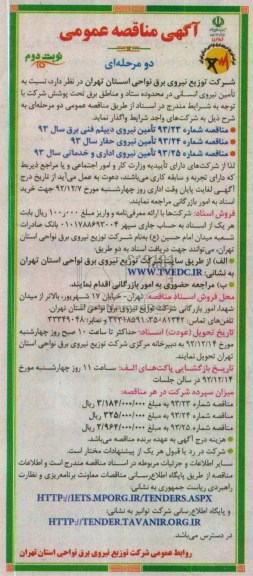 آگهی مناقصه عمومی
نوبت دوم
دو مرحله‌ای
شرکت توزیع نیروی برق نواحی استان تهران در نظر دارد، نسبت به
تأمین نیروی انسانی در محدوده ستاد و مناطق برق تحت پوشش شرکت با
توجه به شرایط مندرج در اسناد از طریق مناقصه عمومی دو مرحله‌ای به
شرح ذیل به شرکت‌های واجد شرایط واگذار نماید.
مناقصه شماره ۹۳/۲۳ تأمین نیروی دیپلم فنی برق سال ۹۳
مناقصه شماره ۹۳/۲۴ تأمین نیروی حفار سال ۹۳
مناقصه شماره ۹۳/۲۵ تأمین نیروی اداری و خدماتی سال ۹۳
لذا از شرکت‌های دارای تأییدیه وزارت کار و امور اجتماعی و یا مراجع ذیربط
که دارای تجربه و سابقه کاری می‌باشند، دعوت به عمل می‌آید از تاریخ درج
آگهی لغایت پایان وقت اداری روز چهارشنبه مورخ ۹۲/۱۲/۷ جهت خرید
اسناد به امور بازرگانی مراجعه نمایند.
فروش اسناد: شرکت‌ها با ارائه معرفی‌نامه و واریز مبلغ ۱۰۰,۰۰۰ ریال بابت
هر یک از اسناد به حساب جاری سپهر ۰۱۰۱۷۸۸۶۹۳۰۰۴ بانک صادرات
شعبه میدان امام حسین (ع) به‌نام شرکت توزیع نیروی برق نواحی استان
تهران، می‌توانند جهت دریافت اسناد به دو طریق:
الف) از طریق سایت شرکت توزیع نیروی برق نواحی استان تهران
به نشانی: WWW.TVEDC.IR
ب) مراجعه حضوری به امور بازرگانی اقدام نمایند.
محل فروش اسناد مناقصه: تهران- خیابان ۱۷ شهریور، بالاتر از میدان
شهدا، امور بازرگانی شرکت توزیع نیروی برق نواحی استان تهران.
تاریخ تحویل (عودت) اسناد: حداکثر تا ساعت ۱۰ صبح روز چهارشنبه
مورخ ۹۲/۱۲/۱۴ به دبیرخانه مرکزی شرکت توزیع نیروی برق نواحی استان
تهران تحویل نمایند.
تاریخ بازگشایی پاکت‌های الف: ساعت ۱۱ روز چهارشنبه مورخ
۹۲/۱۲/۱۴ در سالن جلسات
میزان سپرده شرکت در هر مناقصه:
مناقصه شماره ۹۳/۲۳ به مبلغ ۳/۱۸۴/۰۰۰/۰۰۰ ریال
مناقصه شماره ۹۳/۲۴ به مبلغ ۳۲۵/۰۰۰/۰۰۰ ریال
مناقصه شماره ۹۳/۲۵ به مبلغ ۳/۹۶۴/۰۰۰/۰۰۰ ریال
هزینه درج آگهی به عهده برنده مناقصه می‌باشد.
شرکت در رد یا قبول هر یک از پیشنهادات مختار است.
سایر اطلاعات و جزئیات مربوطه در اسناد مناقصه مندرج است و اطلاعات
مناقصه از طریق پایگاه اطلاع‌رسانی مناقصات معاونت برنامه‌ریزی و نظارت
راهبردی ریاست جمهوری به نشانی:
HTTP://IETS.MPORG.IR/TENDERS.ASPX
و پایگاه اطلاع‌رسانی شرکت توانیر به نشانی:
HTTP://TENDER.TAVANIR.ORG.IR
در دسترس می‌باشد.
روابط عمومی شرکت توزیع نیروی برق نواحی استان تهران